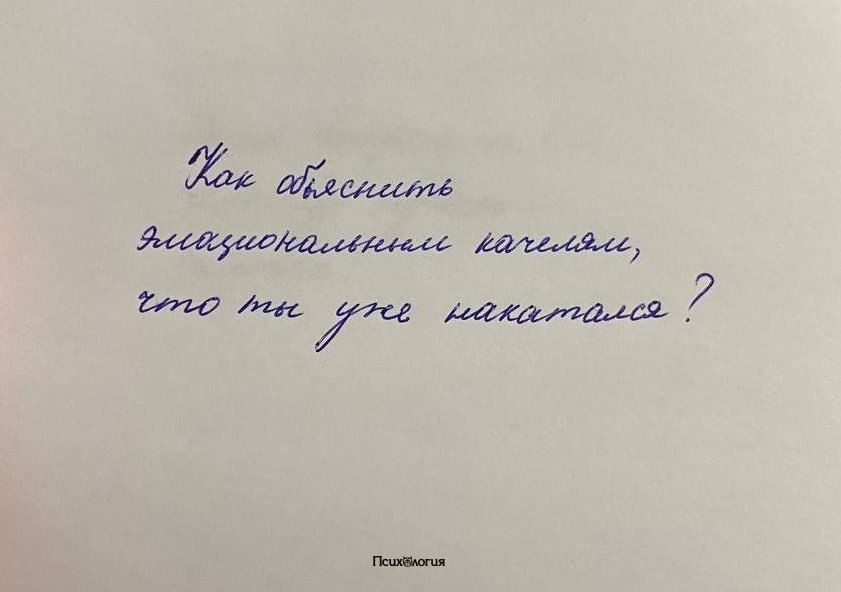 Как объяснить
эмоциональным качелям,
что ты уже накатался?
Психология